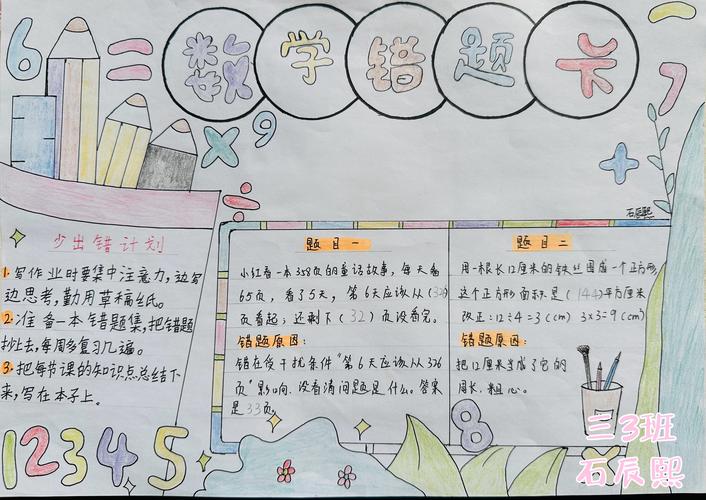 数学错题卡
6
=
7
x
9
÷
+
石辰熙
少出错计划
1.写作业时要集中注意力,边写
边思考,勤用草稿纸。
2.准备一本错题集,把错题
抄上去,每周多复习几遍。
3.把每节课的知识点总结下
来,写在本子上。
题目一
小红看一本358页的童话故事,每天看
65页,看了5天,第6天应该从(326)
页看起;还剩下(32)页没看完。
错题原因:
错在受干扰条件“第6天应该从326
页”影响,没看清问题是什么。答案
是33页。
题目二
用一根长12厘米的铁丝围成一个正方形,
这个正方形面积是(144)平方厘米
改正:12÷4=3(cm) 3×3=9(cm)
错题原因:
把12厘米当成了它的
周长,粗心。
8
1 2 3 4 5
三3班
石辰熙